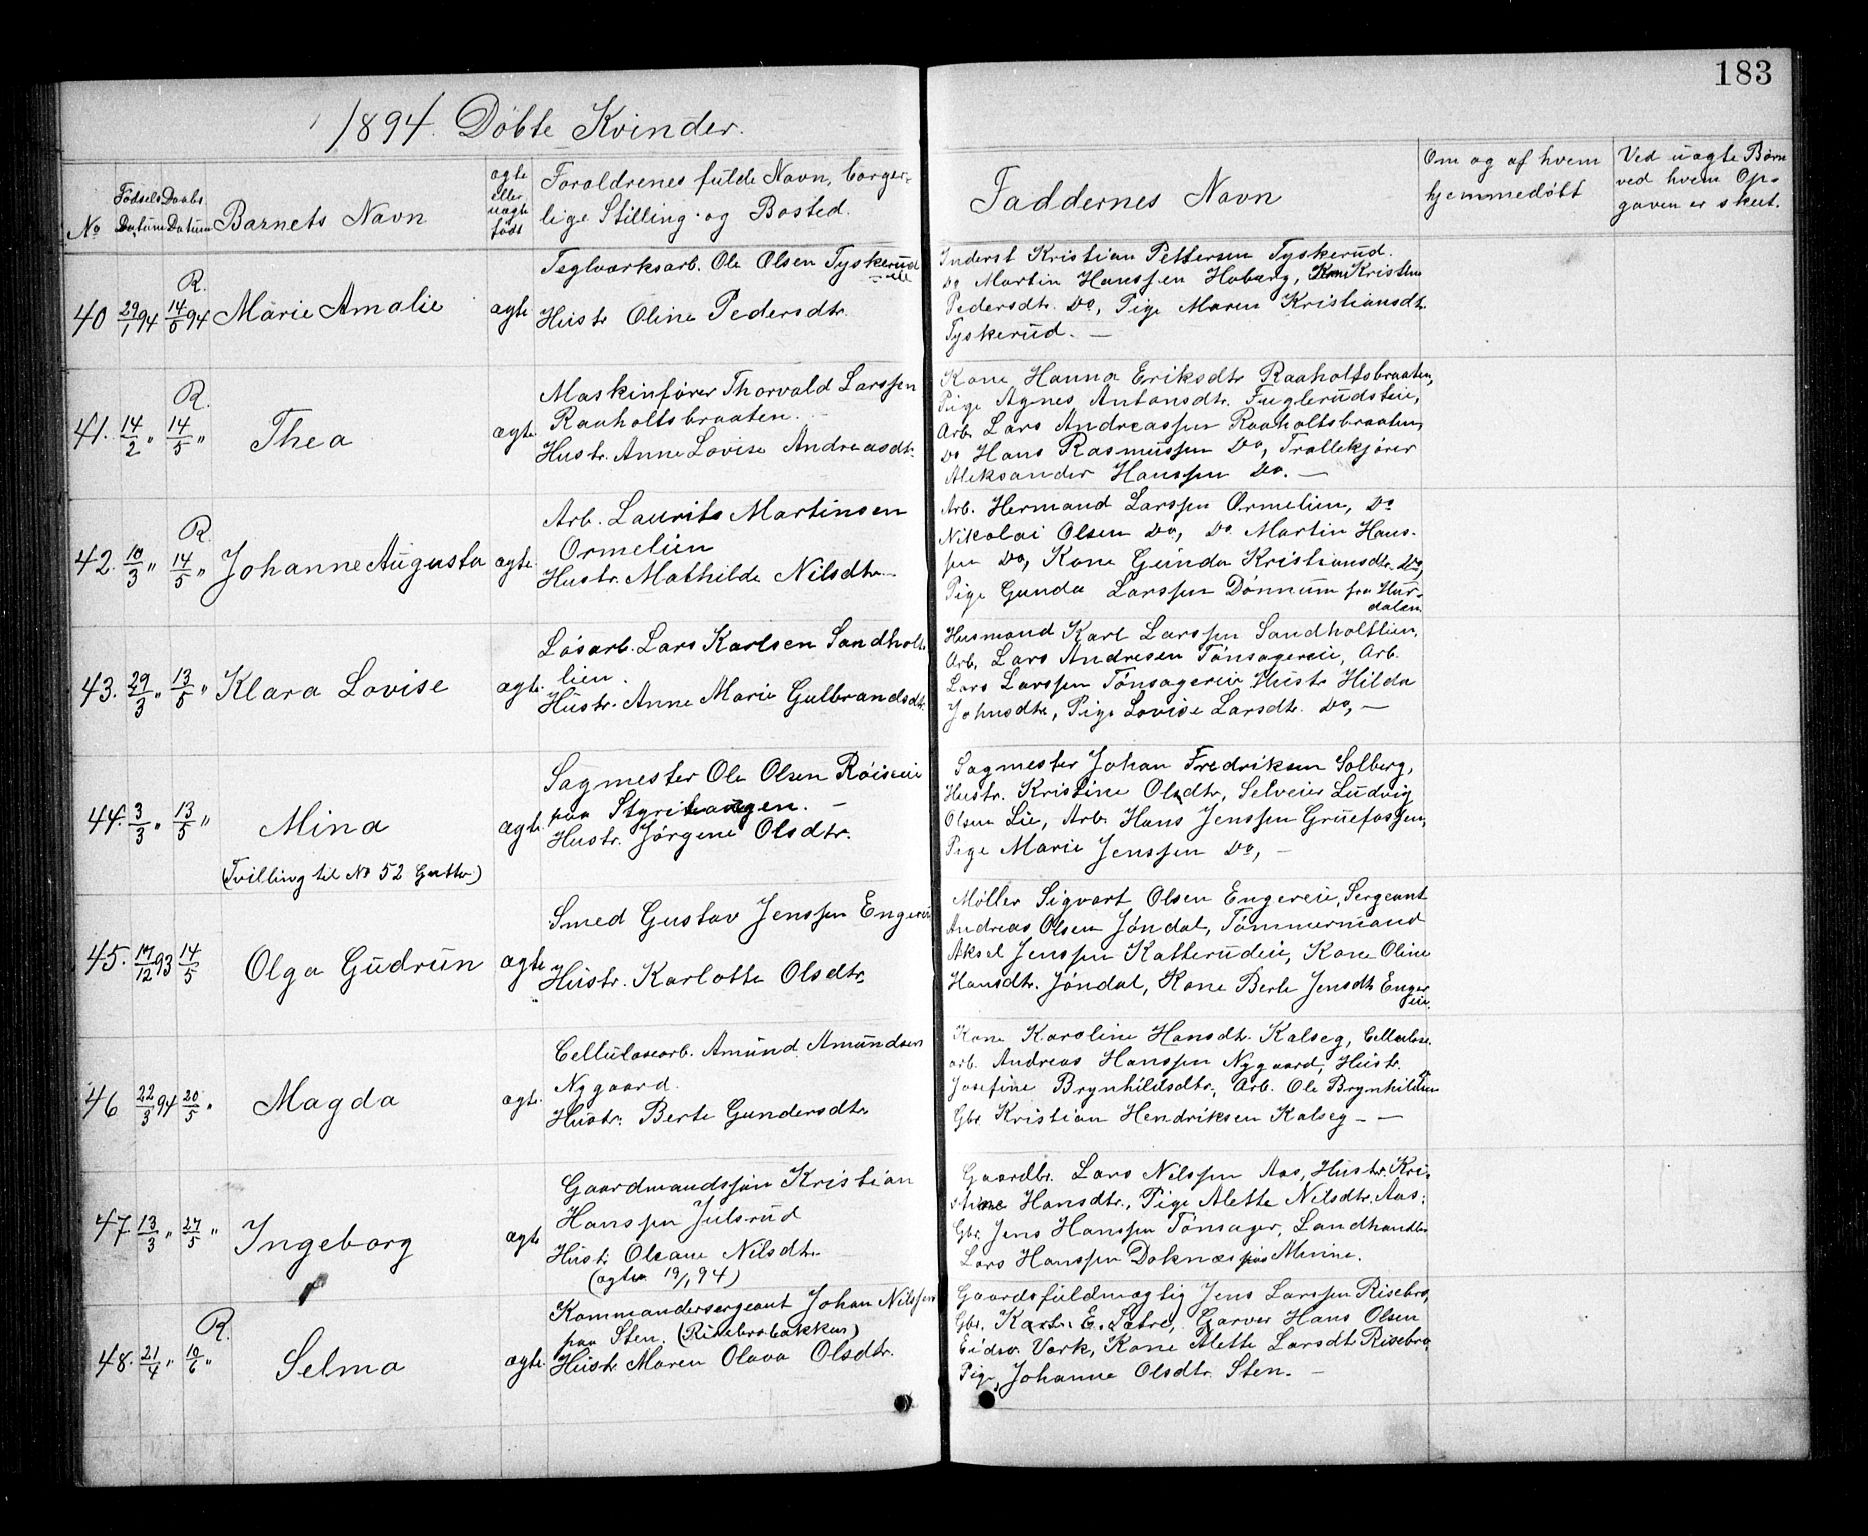 183
1894. Döbte Kvinder.
No
Födsels Datum
Daabs Datum
Barnets Navn
ægte eller uægte födt
Forældrenes fulde Navn, borger-
lige Stilling og Bosted.
Faddernes Navn
Om og af hvem
hjemmedöbt
Ved uægte Börn
ved hvem Op-
gaven er skeet.
40 29/1 94 R. 14/5 94 Marie Amalie ægte
Teglværksarb. Ole Olsen Tyskerud
Hustr Oline Pedersdtr.
Inderst Kristian Pettersen Tyskerud.
Do Martin Hanssen Hoberg, Kristine
Pedersdtr. Do, Pige Maren Kristiansdtr.
Tyskerud. —
41. 14/2 „ R. 14/5 „ Thea ægte
Maskinförer Thorvald Larssen
Raaholtsbraaten. —
Hustr. Anne Lovise Andreasdtr.
Kone Hanna Eriksdtr Raaholtsbraaten,
Pige Agnes Antonsdtr. Fuglerudsteie,
Arb. Lars Andreassen Raaholtsbraaten,
Do Hans Rasmussen Do, Trallekjörer
Aleksander Hanssen Do. —
42. 10/3 „ R. 14/5 „ Johanne Augusta ægte.
Arb. Laurits Martinsen
Ormelien
Hustr. Mathilde Nilsdtr. —
Arb. Hermand Larssen Ormelien, Do
Nikolai Olsen Do, Do Martin Hans-
sen Do, Kone Gunda Kristiansdtr. Do,
Pige Gunda Larssen Dönnum fra Hur-
dalen
43. 29/3 „ 13/5 „ Klara Lovise ægte.
Lösarb. Lars Karlsen Sandholt
lien.
Hustr. Anne Marie Gulbrandsdtr.
Husmand Karl Larssen Sandholtlien,
Arb. Lars Andresen Tönsagereie, Arb.
Lars Larssen Tönsagereie Hustr Hilda
Johnsdtr, Pige Lovise Larsdtr. Do, —
44. 3/3 „ 13/5 „ Mina ægte.
(Tvilling til No 52 Gutter)
Sagmester Ole Olsen Röiseie
paa Styrihaugen. —
Hustr. Jörgene Olsdtr.
Sagmester Johan Fredriksen Solberg,
Hustr. Kristine Olsdtr, Selveier Ludvig
Olsen Lie, Arb. Hans Jenssen Gruefossen,
Pige Marie Jenssen Do, —
45. 17/12 93 14/5 Olga Gudrun ægte
Smed Gustav Jenssen Engereie
Hustr. Karlotte Olsdtr.
Möller Sigvart Olsen Engereie, Sergeant
Andreas Olsen Jöndal, Tömmermand
Aksel Jenssen Katterudeie, Kone Oline
Hansdtr. Jöndal, Kone Berte Jensdtr Enger
eie.
46 22/3 94 20/5 „ Magda ægte.
Cellulosearb. Amund Amundsen
Nygaard.
Hustr. Berte Gundersdtr
Kone Karoline Hansdtr. Kalseg, Cellulose.
arb. Andreas Hanssen Nygaard, Hustr.
Josefine Brynhildsdtr, Arb. Ole Brynhildsen
Gbr. Kristian Hendriksen Kalseg — —
47 13/3 „ 27/5 „ Ingeborg ægte
Gaardmandssön Kristian
Hanssen Julsrud
Hustr Oleane Nilsdtr.
(ægtev 19/1 94)
Gaardbr. Lars Nilssen Aas, Hustr. Kri-
stine Hansdtr., Pige Alette Nilsdtr. Aas:
Gbr. Jens Hanssen Tönsager, Landhandler
Lars Hanssen Doknæs paa Minne.
48. 21/4 „ R. 10/6 „ Selma ægte.
Kommandersergeant Johan Nilssen
paa Sten. (Risebrobakken)
Hustr Maren Olava Olsdtr.
Gaardsfuldmægtig Jens Larssen Risebro,
Gbr. Karl E. Sætre, Garver Hans Olsen
Eidsv. Værk, Kone Alette Larsdtr Risebro
Pige, Johanne Olsdtr. Sten. —